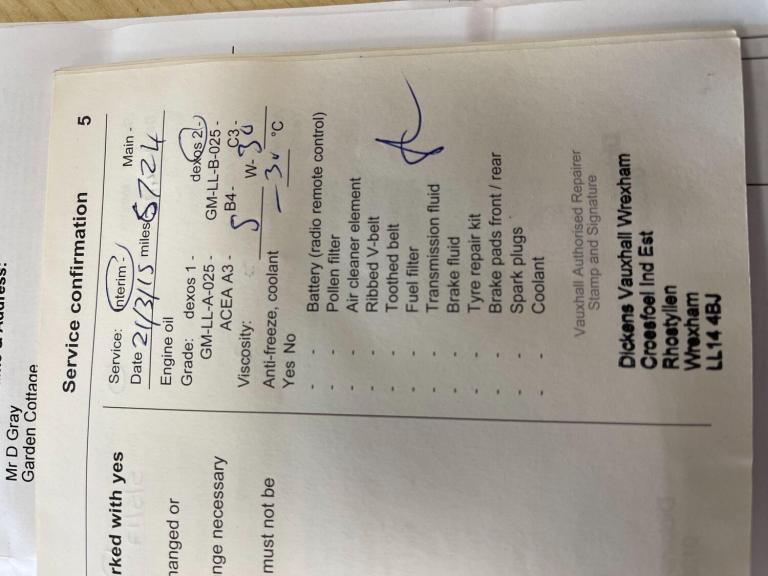 5
Service confirmation
Service: Interim - Main -
Date 21/3/15 miles 5724
Engine oil
Grade: dexos 1 - dexos 2 -
GM-LL-A-025 - GM-LL-B-025 -
ACEA A3 - B4 - C3 -
Viscosity: 5 W- 30
Anti-freeze, coolant -30 °C
Yes No
- - Battery (radio remote control)
- - Pollen filter
- - Air cleaner element
- - Ribbed V-belt
- - Toothed belt
- - Fuel filter
- - Transmission fluid
- - Brake fluid
- - Tyre repair kit
- - Brake pads front / rear
- - Spark plugs
- - Coolant
Vauxhall Authorised Repairer
Stamp and Signature
Dickens Vauxhall Wrexham
Croesfoel Ind Est
Rhostyllen
Wrexham
LL14 4BJ
rked with yes
hanged or
nge necessary
must not be
Address:
Mr D Gray
Garden Cottage